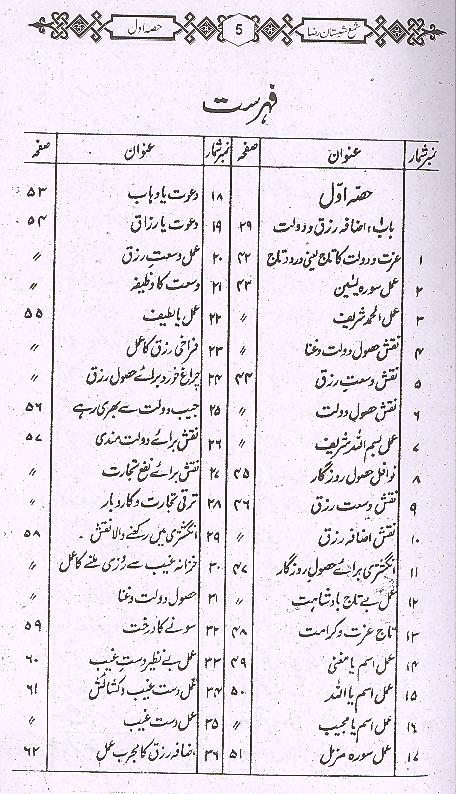 شمع شبستان رضا 5 حصہ اول
فہرست
نمبر شمار عنوان صفحہ
حصہ اول
باب ۱؛ اضافہ رزق و دولت ۳۹
۱ عزت و دولت کا تاج یعنی درود تاج ۴۲
۲ عمل سورہ یٰسین ۴۳
۳ عمل الحمد شریف 〃
۴ نقش حصول دولت و غنا 〃
۵ نقش وسعتِ رزق ۴۴
۶ نقش حصول دولت 〃
۷ عمل بسم اللہ شریف 〃
۸ نوافل حصول روزگار ۴۵
۹ نقش وسعت رزق ۴۶
۱۰ نقش اضافہ رزق 〃
۱۱ انگشتری برائے حصول روزگار ۴۷
۱۲ عمل بے تاج بادشاہت 〃
۱۳ تاج عزت و کرامت ۴۸
۱۴ عمل اسم یا مغنی ۴۹
۱۵ عمل اسم یا اللہ ۵۰
۱۶ عمل اسم یا مجیب 〃
۱۷ عمل سورہ مزمل ۵۱
نمبر شمار عنوان صفحہ
۱۸ دعوت یا وہاب ۵۳
۱۹ دعوت یا رزاق ۵۴
۲۰ عمل وسعتِ رزق 〃
۲۱ وسعت کا وظیفہ 〃
۲۲ عمل یا لطیف ۵۵
۲۳ فراخی رزق کا عمل 〃
۲۴ چراغ خورد برائے حصول رزق 〃
۲۵ جیب دولت سے بھری رہے ۵۶
۲۶ نقش برائے دولت مندی ۵۷
۲۷ نقش برائے نفع تجارت 〃
۲۸ ترقی تجارت و کاروبار 〃
۲۹ انگشتری میں رکھنے والا نقش ۵۸
۳۰ خزانہ غیب سے روزی ملنے کا عمل 〃
۳۱ حصول دولت و غنا 〃
۳۲ سونے کا درخت ۵۹
۳۳ عمل بے نظیر دستِ غیب ۶۰
۳۴ عمل دست غیب و کشائش ۶۱
۳۵ عمل دست غیب 〃
۳۶ اضافہ رزق کا مجرب عمل ۶۲